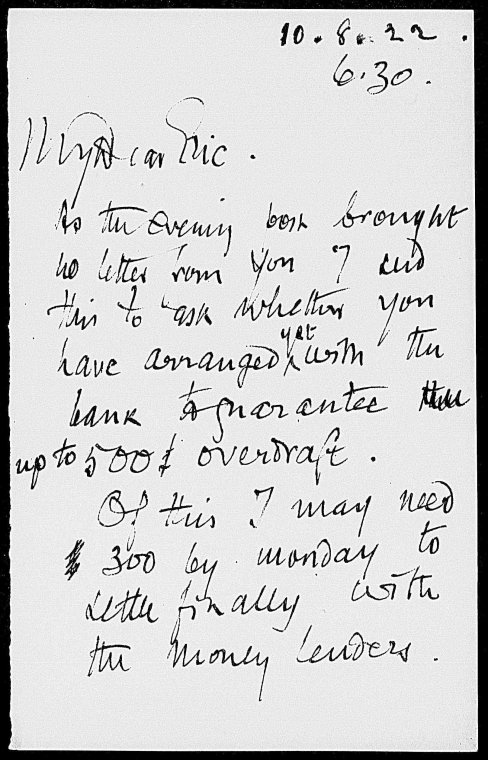 10.8.22.
6.30.
My Dear Eric.
As the evening post brought
no letter from you I send
this to ask whether you
have arranged yet with the
bank to guarantee
up to 500£ overdraft.
Of this I may need
300 by monday to
settle finally with
the money lenders.